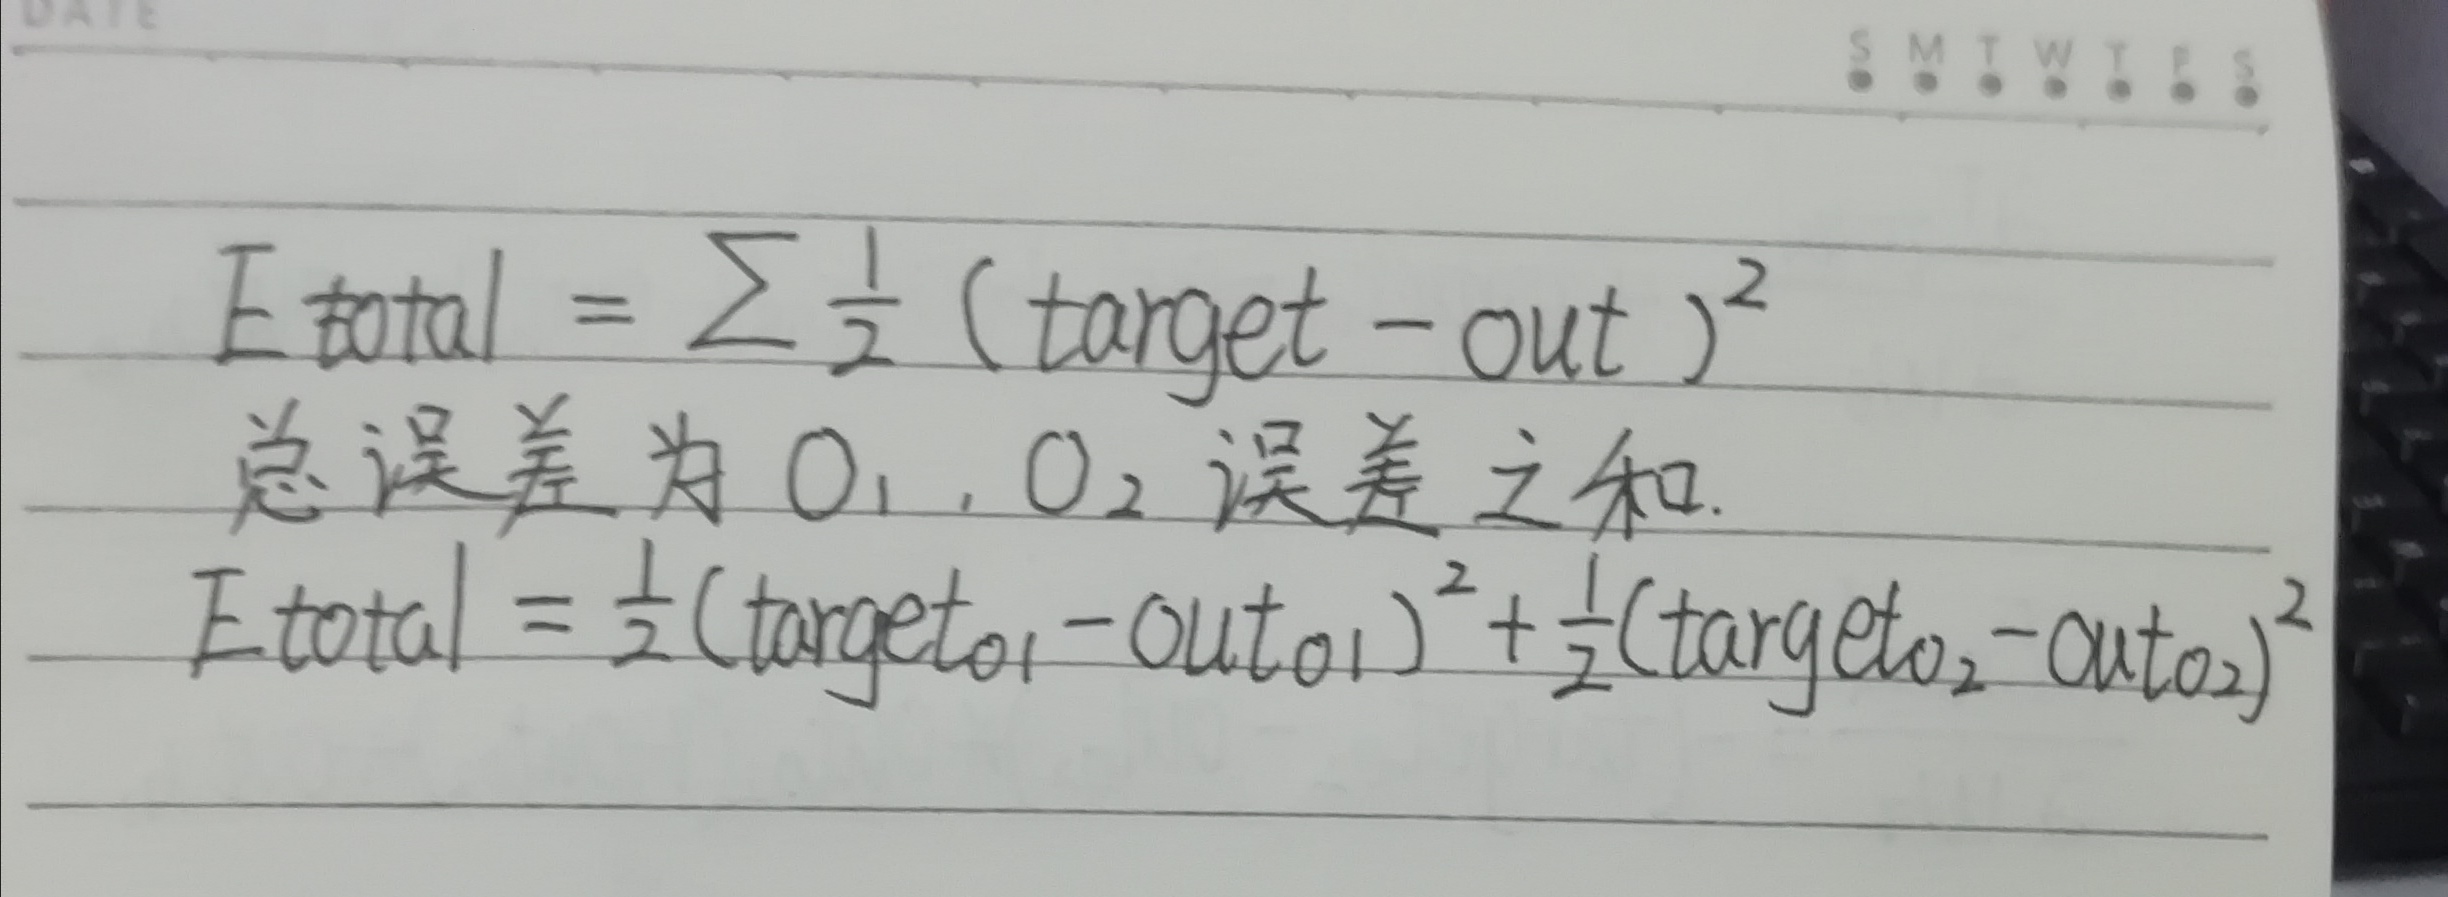 DATE
S M T W T F S
Etotal = ∑ 1/2 (target - out)²
总误差为O₁,O₂误差之和.
Etotal = 1/2 (targetₒ₁ - outₒ₁)² + 1/2 (targetₒ₂ - outₒ₂)²